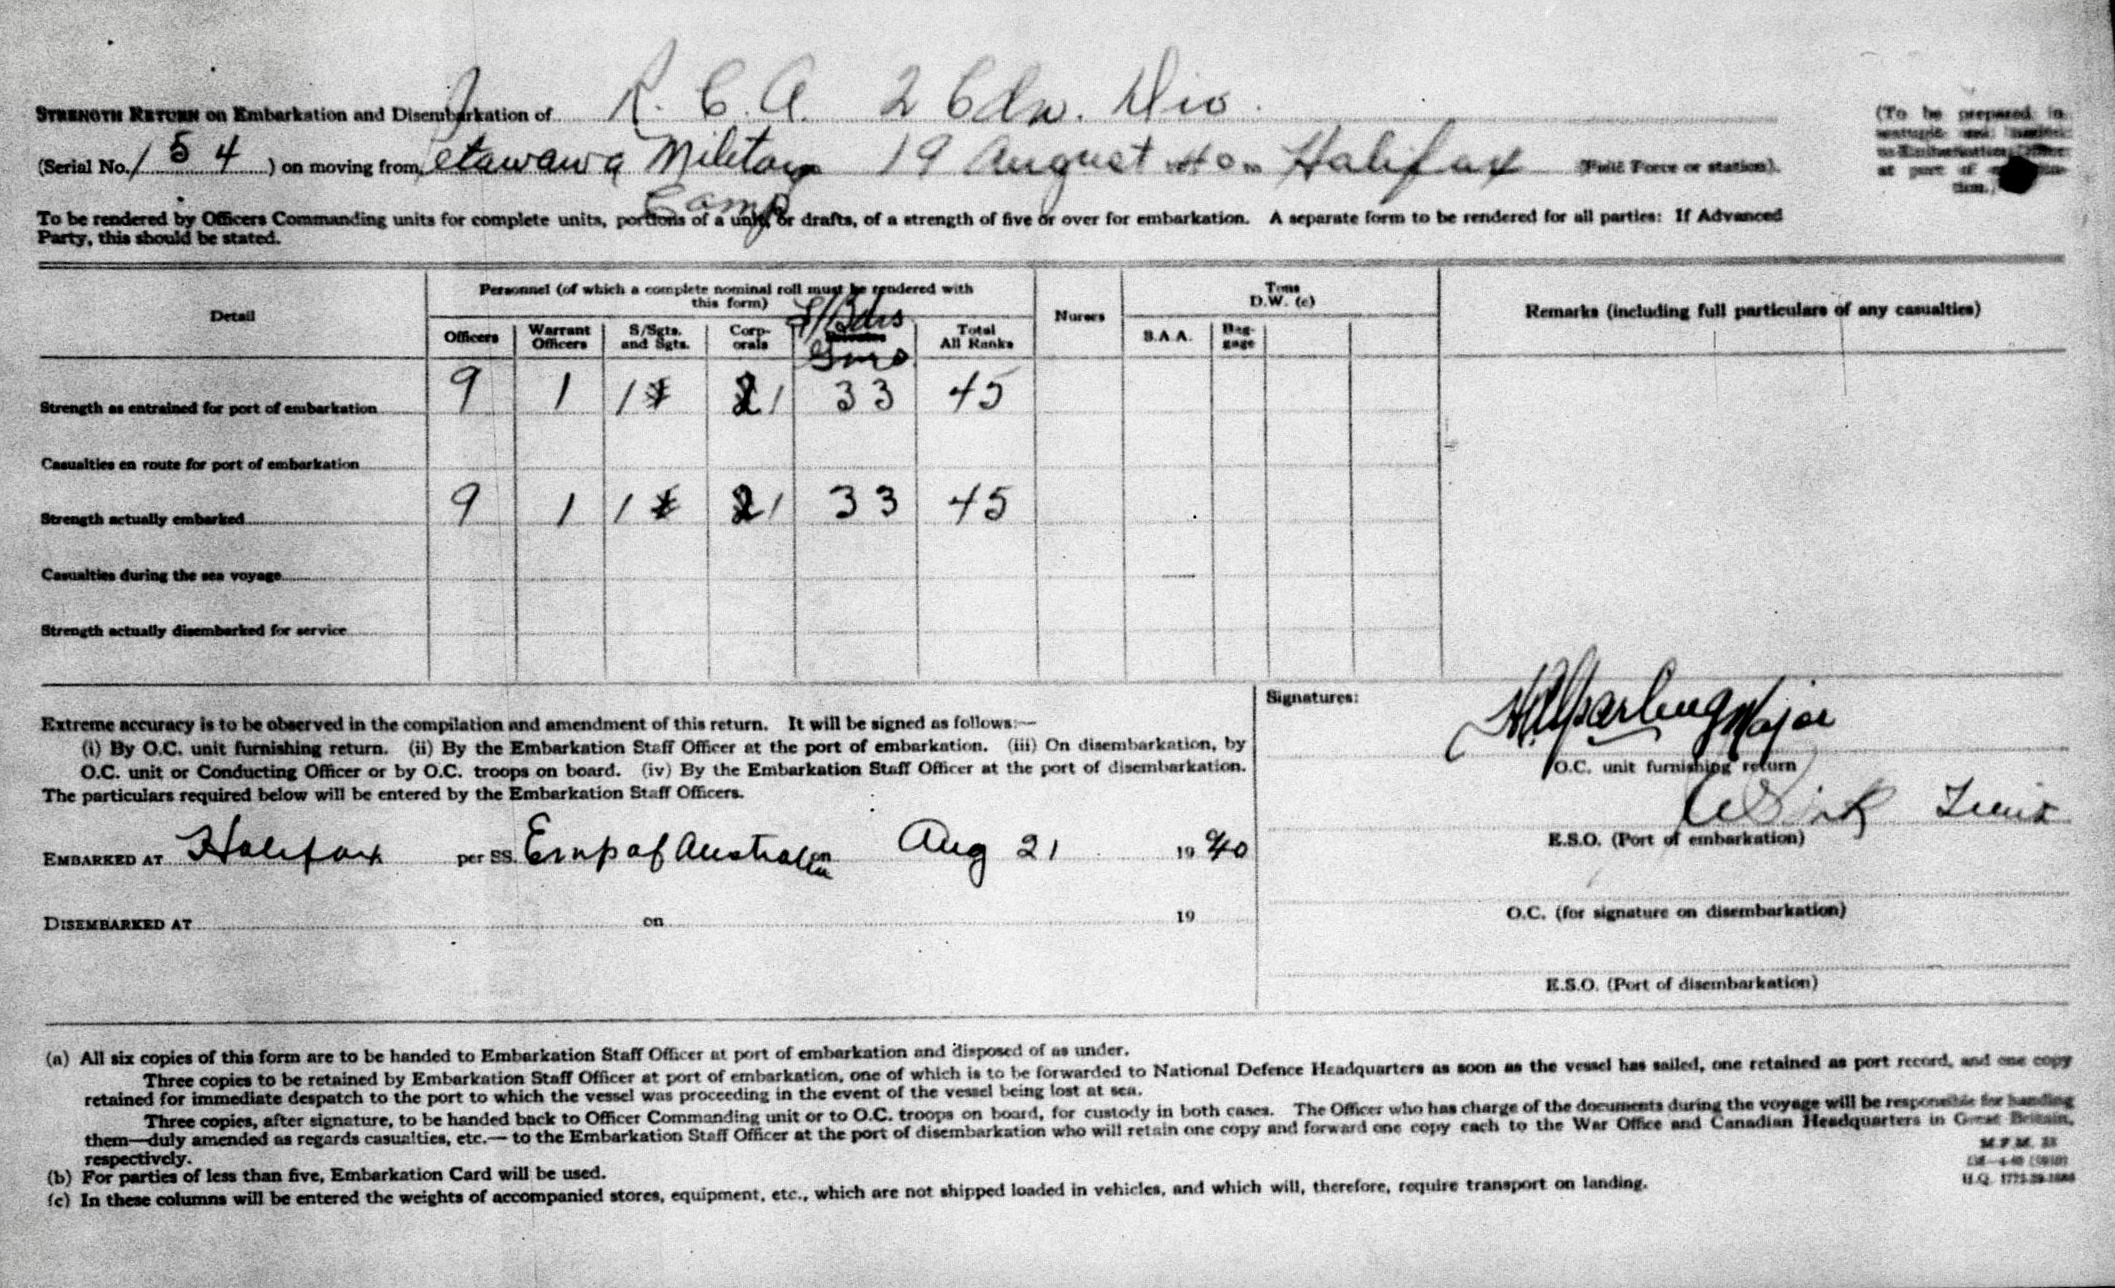 R. C. A. 2 Cdn. Div.
STRENGTH RETURN on Embarkation and Disembarkation of
(Serial No. 154) on moving from Petawawa Military Camp 19 August 40 to Halifax (Field Force or station).
(To be prepared in
at port of
To be rendered by Officers Commanding units for complete units, portions of a unit, or drafts, of a strength of five or over for embarkation. A separate form to be rendered for all parties: If Advanced
Party, this should be stated.
Detail
Personnel (of which a complete nominal roll must be rendered with
this form)
Officers
Warrant Officers
S/Sgts. and Sgts.
Corporals
L/Bdrs Privates Gnrs
Total All Ranks
Nurses
Tons
D.W. (c)
S.A.A.
Baggage
Remarks (including full particulars of any casualties)
Strength as entrained for port of embarkation 9 1 1 1 33 45
Casualties en route for port of embarkation
Strength actually embarked 9 1 1 1 33 45
Casualties during the sea voyage
Strength actually disembarked for service
Extreme accuracy is to be observed in the compilation and amendment of this return. It will be signed as follows:—
(i) By O.C. unit furnishing return. (ii) By the Embarkation Staff Officer at the port of embarkation. (iii) On disembarkation, by
O.C. unit or Conducting Officer or by O.C. troops on board. (iv) By the Embarkation Staff Officer at the port of disembarkation.
The particulars required below will be entered by the Embarkation Staff Officers.
EMBARKED AT Halifax per SS. Emp of Australia Aug 21 1940
DISEMBARKED AT on 19
Signatures:
HA Sparling Major
O.C. unit furnishing return
E.S.O. (Port of embarkation)
O.C. (for signature on disembarkation)
E.S.O. (Port of disembarkation)
(a) All six copies of this form are to be handed to Embarkation Staff Officer at port of embarkation and disposed of as under.
Three copies to be retained by Embarkation Staff Officer at port of embarkation, one of which is to be forwarded to National Defence Headquarters as soon as the vessel has sailed, one retained as port record, and one copy
retained for immediate despatch to the port to which the vessel was proceeding in the event of the vessel being lost at sea.
Three copies, after signature, to be handed back to Officer Commanding unit or to O.C. troops on board, for custody in both cases. The Officer who has charge of the documents during the voyage will be responsible for handing
them—duly amended as regards casualties, etc.— to the Embarkation Staff Officer at the port of disembarkation who will retain one copy and forward one copy each to the War Office and Canadian Headquarters in Great Britain,
respectively.
(b) For parties of less than five, Embarkation Card will be used.
(c) In these columns will be entered the weights of accompanied stores, equipment, etc., which are not shipped loaded in vehicles, and which will, therefore, require transport on landing.
M.F.M.
H.Q.